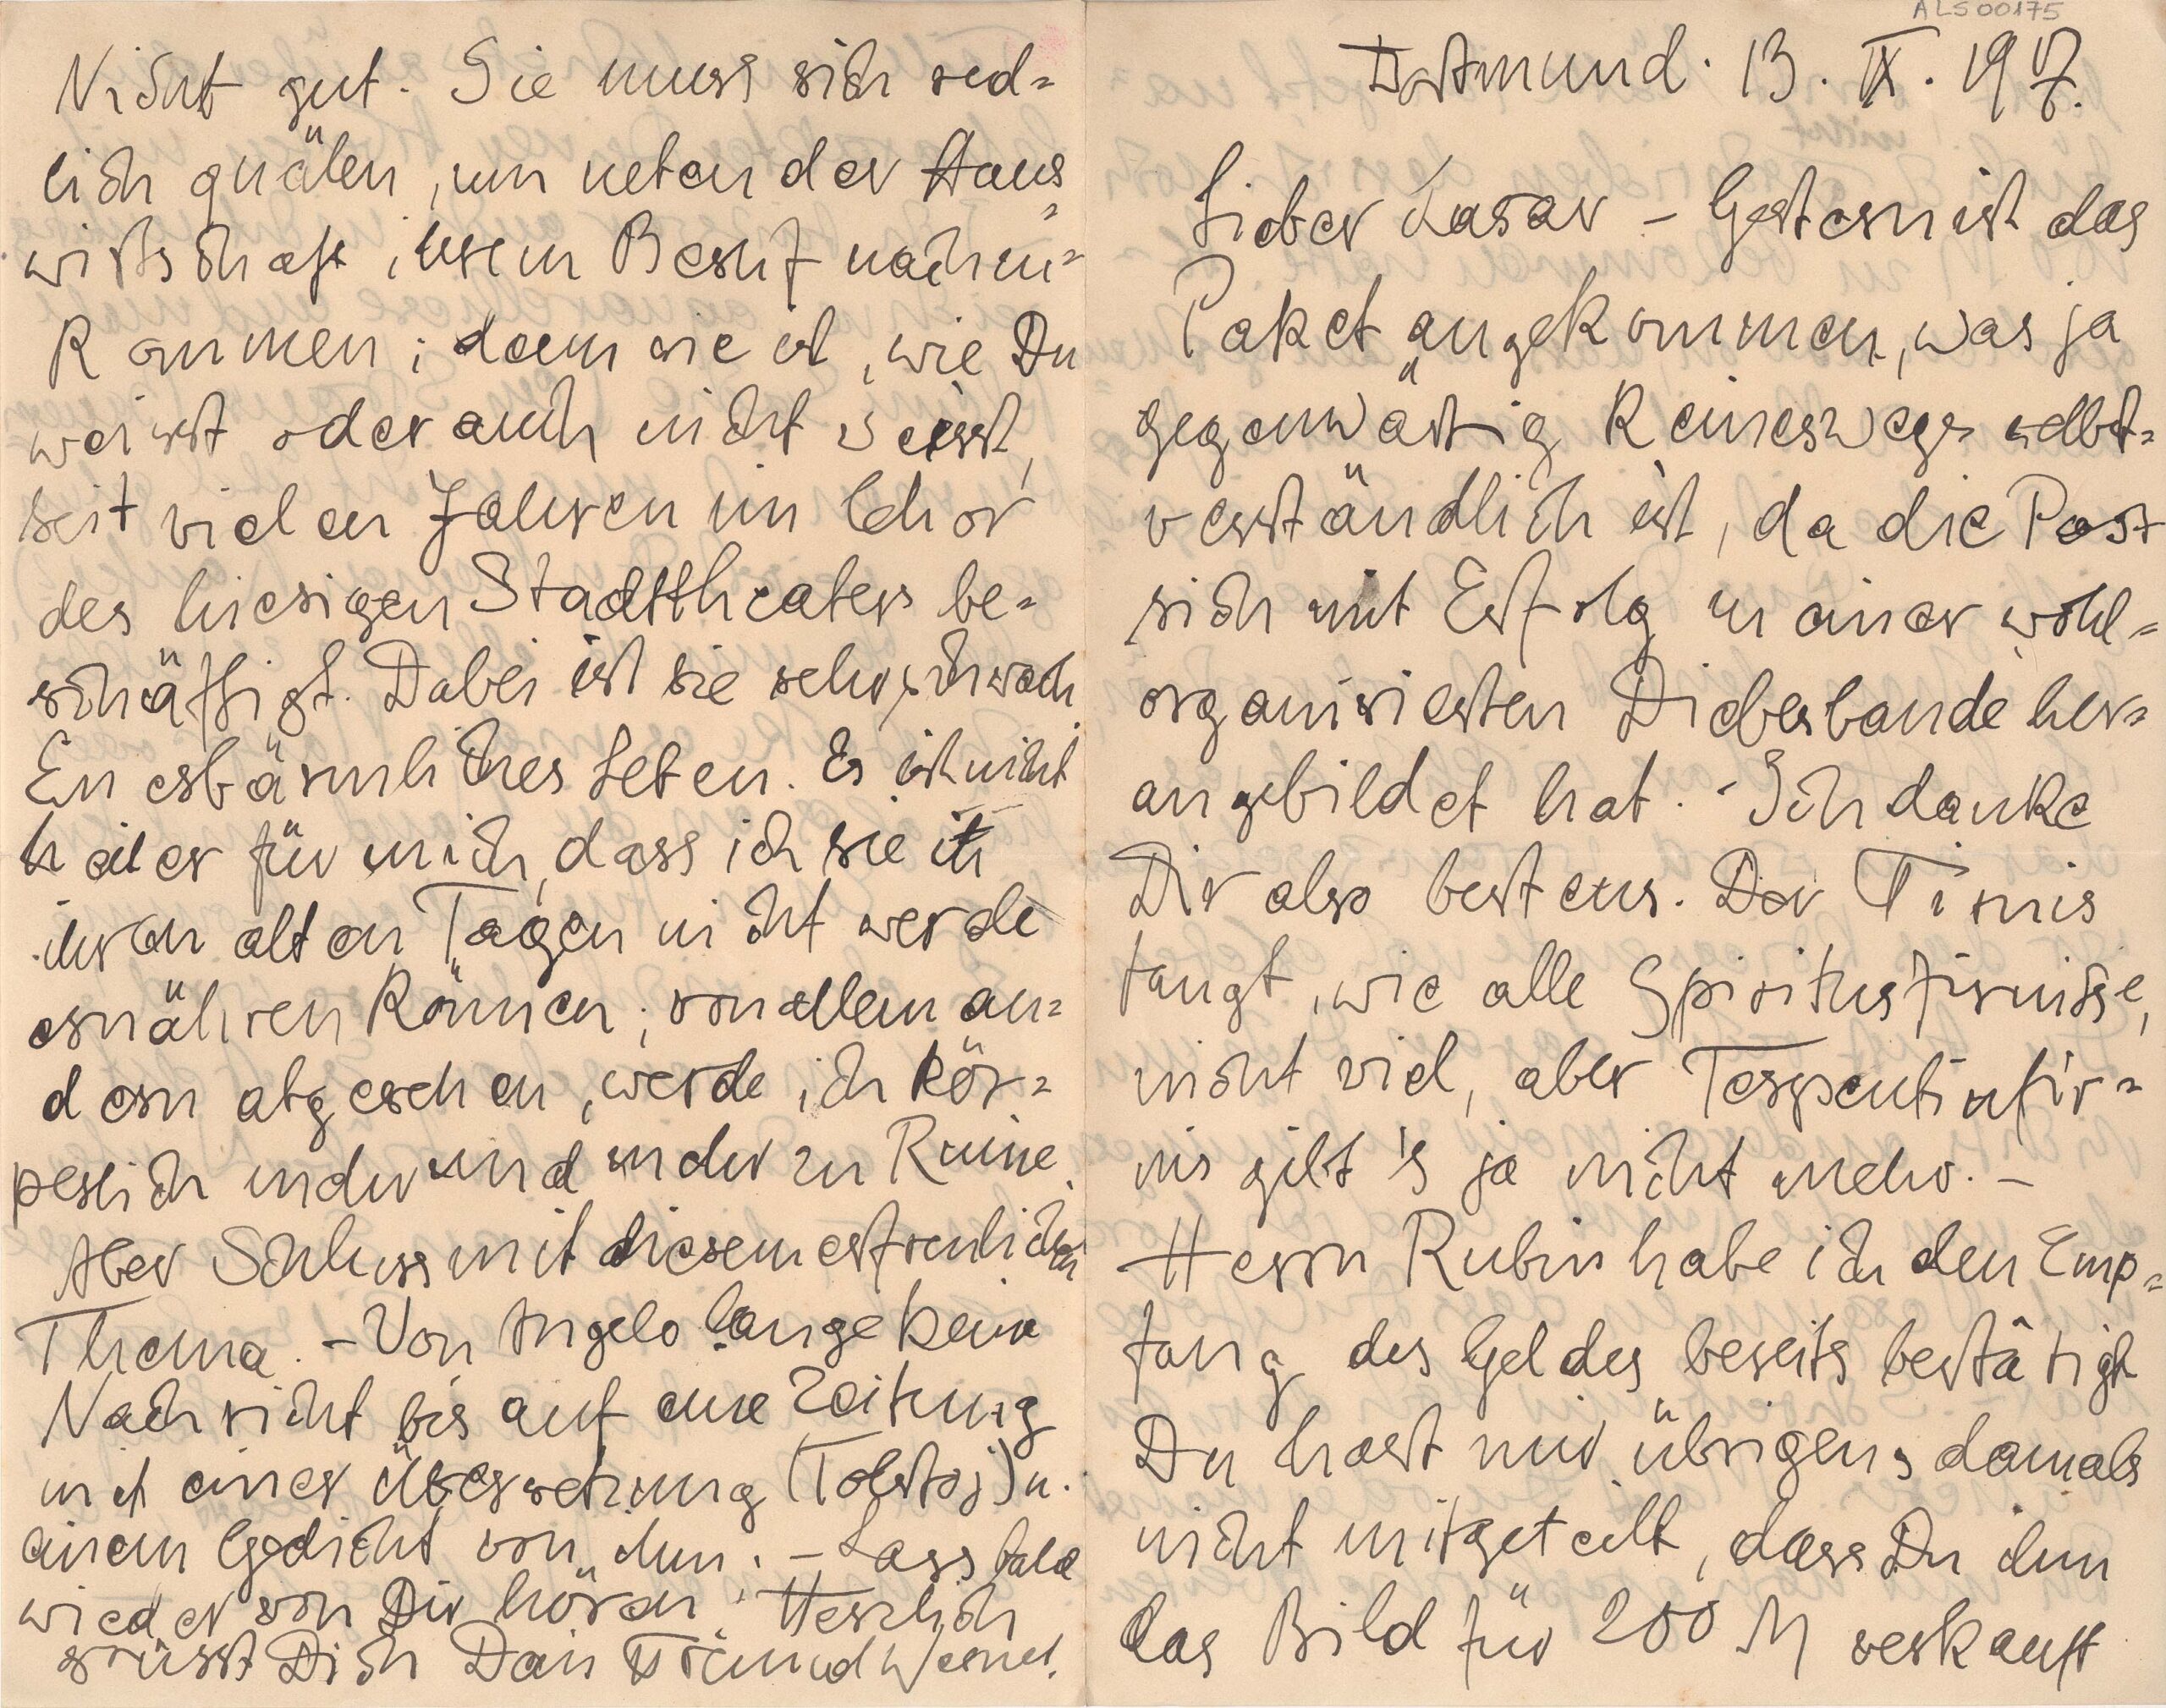 ALS00175
Dortmund. 13. IX. 1917.
Lieber Lasar – Gestern ist das
Paket angekommen, was ja
gegenwärtig keineswegs selbst=
verständlich ist, da die Post
sich mit Erfolg zu einer wohl=
organisierten Diebesbande her=
angebildet hat. – Ich danke
Dir also bestens. Der Firnis
taugt, wie alle Spiritusfirnisse,
nicht viel, aber Terpentinfir=
nis gibt's ja nicht mehr. –
Herrn Rubin habe ich den Emp=
fang des Geldes bereits bestätigt
Du hast mir übrigens damals
nicht mitgeteilt, dass Du ihm
das Bild für 200 M verkauft
Nicht gut. Sie muss sich red=
lich quälen, um neben der Haus=
wirtschaft ihrem Beruf nachzu=
kommen; denn sie ist, wie Du
weisst oder auch nicht weisst,
seit vielen Jahren im Chor
des hiesigen Stadttheaters be=
schäftigt. Dabei ist sie sehr schwach.
Ein erbärmliches Leben. Es ist nicht
heiter für mich, dass ich sie in
ihren alten Tagen nicht werde
ernähren können; von allem an=
dern abgesehen, werde ich kör=
perlich mehr und mehr zu Ruine.
Aber Schluss mit diesem erfreulichen
Thema. – Von Angelo lange keine
Nachricht bis auf eine Zeitung
mit einer Übersetzung (Tolstoj) u.
einem Gedicht von ihm. – Lass bald
wieder von Dir hören. Herzlich
grüsst Dich Dein Freund Werner.